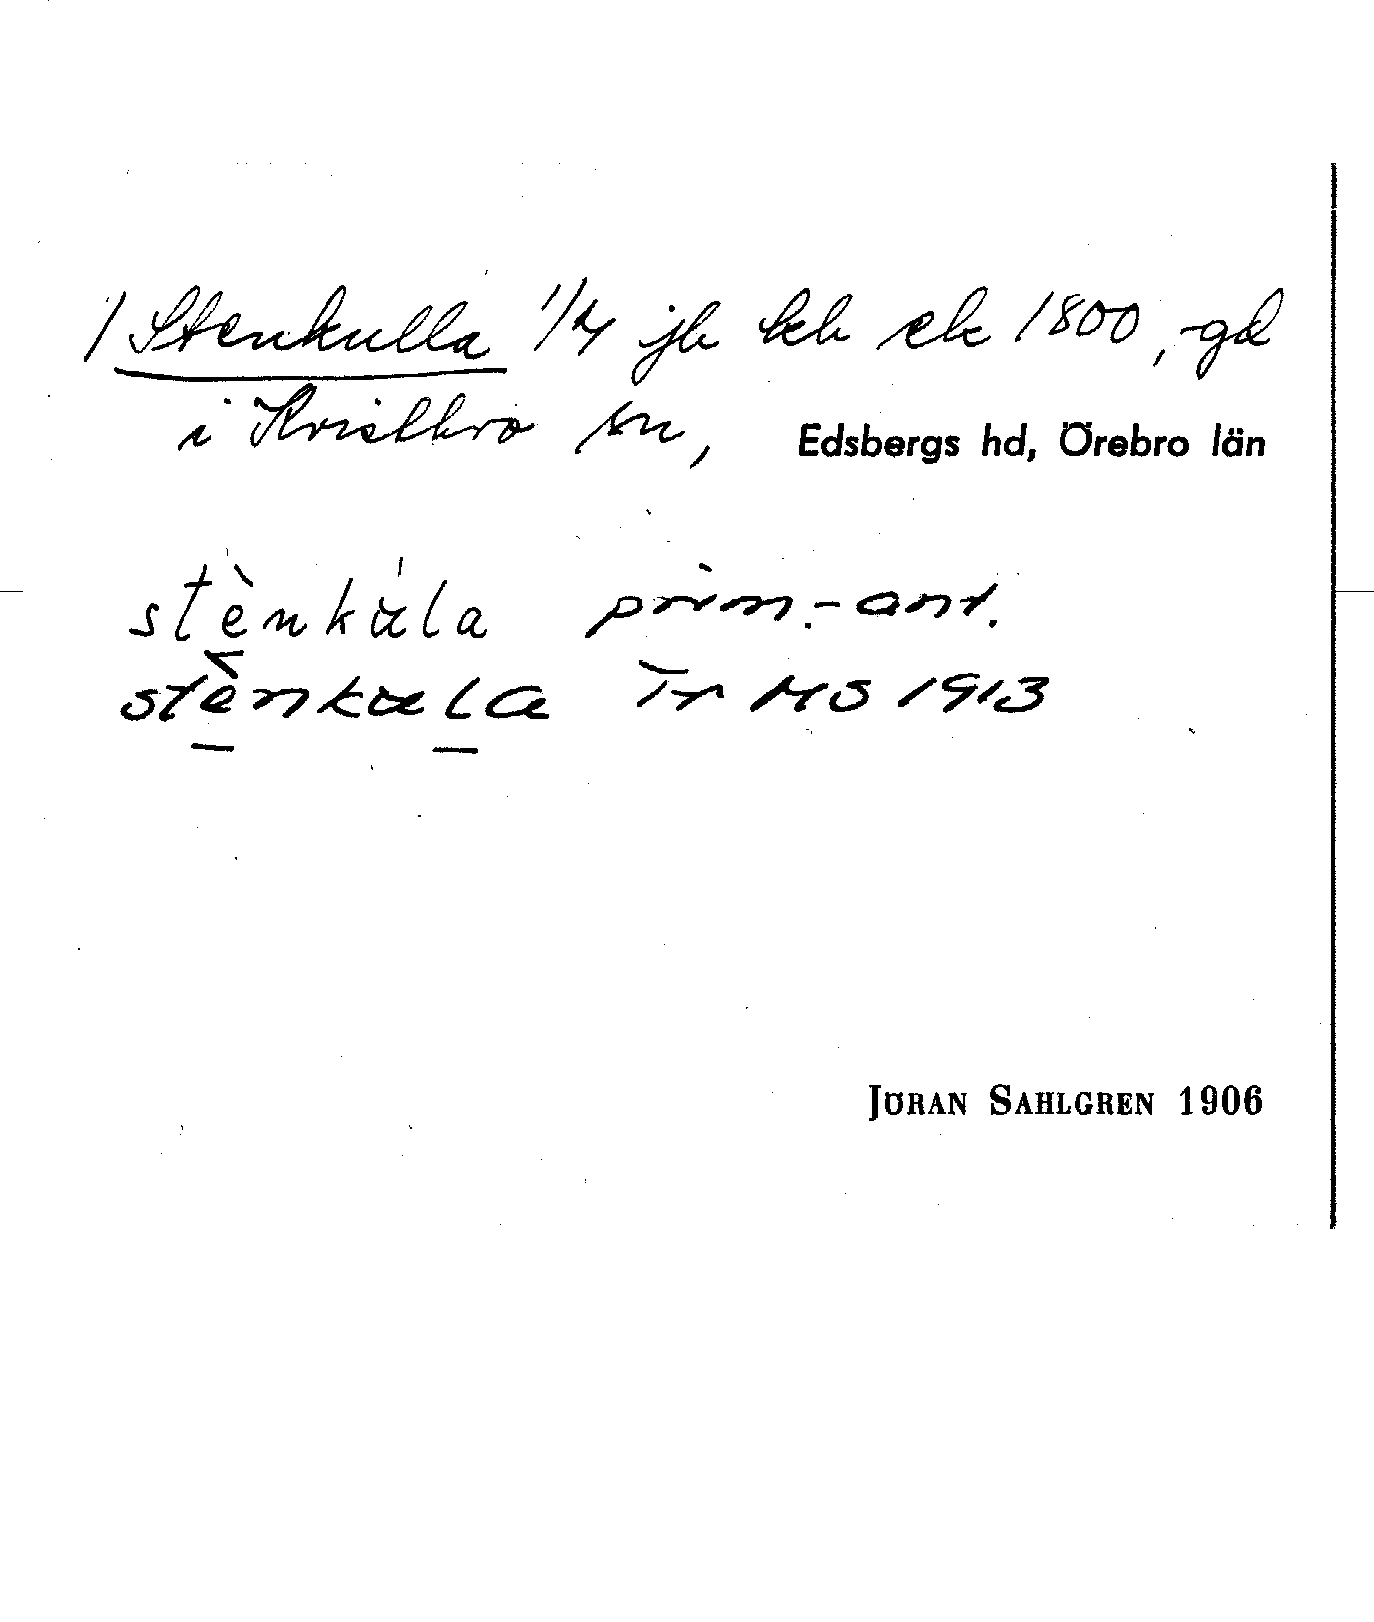 1) Stenkulla 1/4 jb kk ek 1800, -gd
i Kvistbro sn, Edsbergs hd, Örebro län
stènkúla prim.-ant.
stènkula Tr MS 1913
JÖRAN SAHLGREN 1906